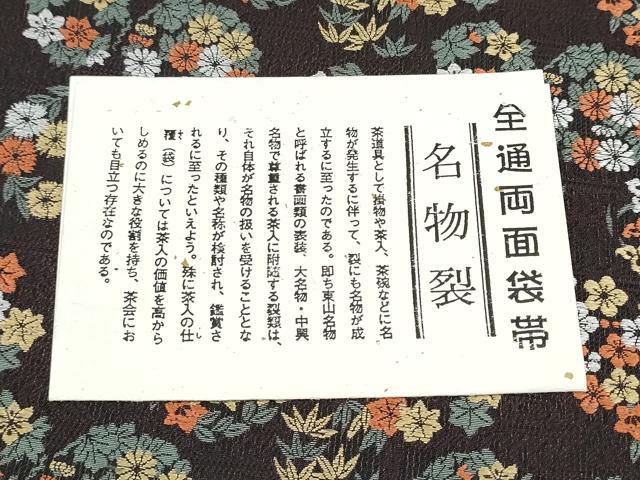 全通両面袋帯
名物裂
茶道具として掛物や茶入、茶碗などに名
物が発生するに伴って、裂にも名物が成
立するに至ったのである。即ち東山名物
と呼ばれる書画類の表装、大名物・中興
名物で尊重される茶入に附随する裂類は、
それ自体が名物の扱いを受けることとな
り、その種類や名称が検討され、鑑賞さ
れるに至ったといえよう。殊に茶入の仕
覆（袋）については茶入の価値を高から
しめるのに大きな役割を持ち、茶会にお
いても目立つ存在なのである。